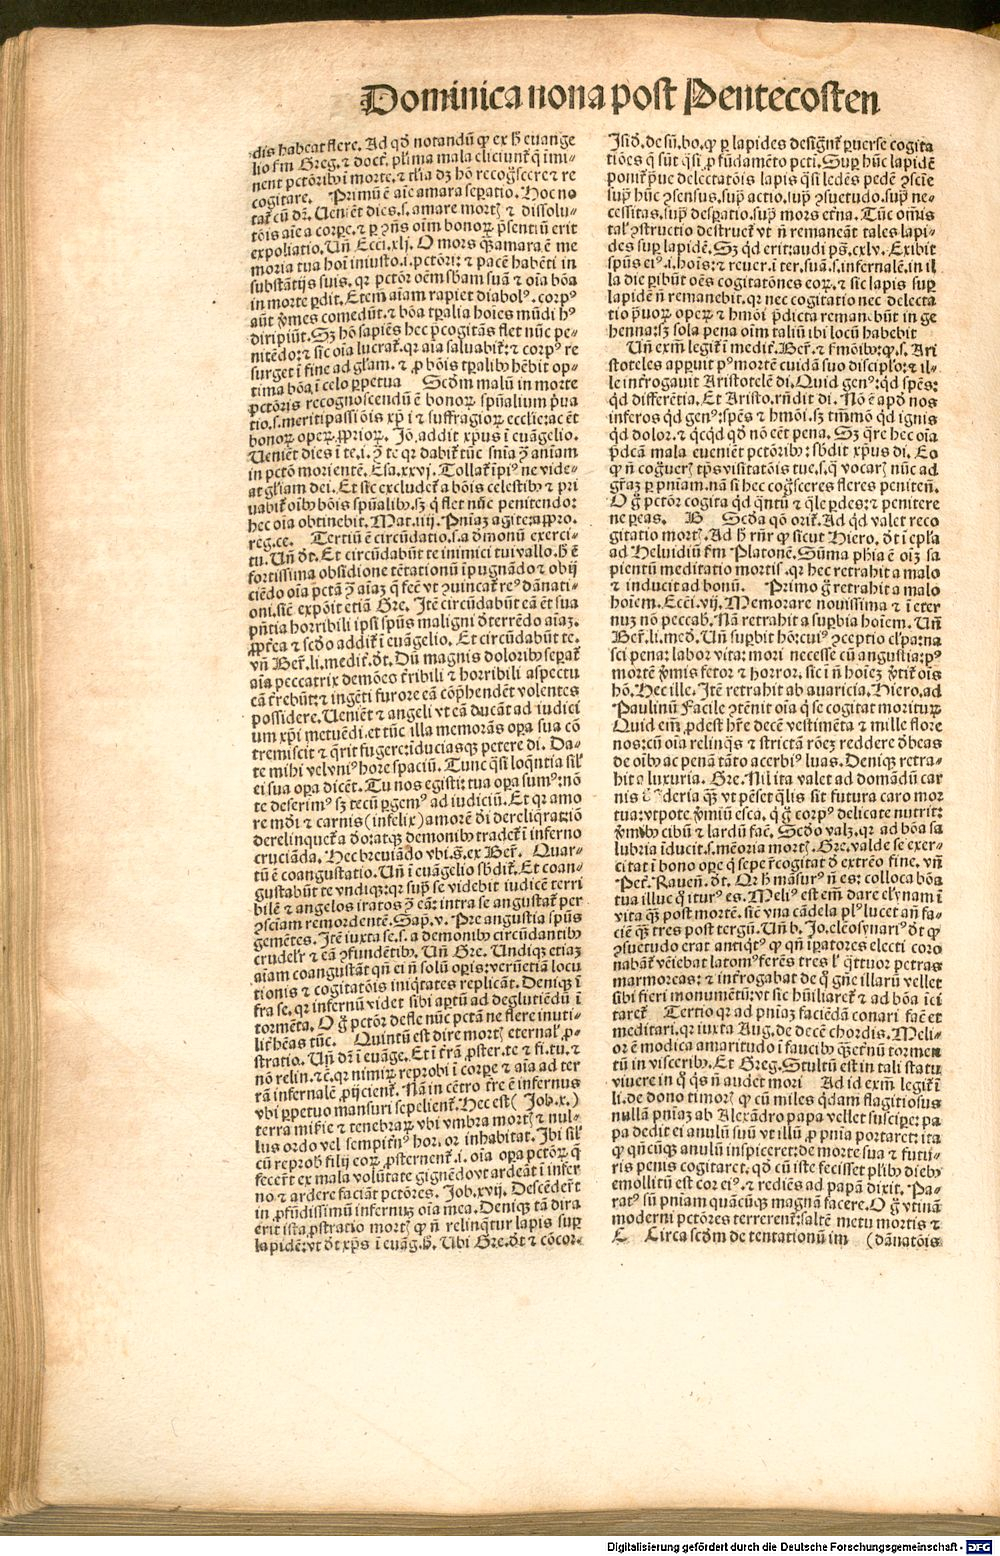 Dominica nona post Pentecosten
dis habeat flere. Ad qd̄ notandū ꝙ ex h̄ euange
lio ẜm Greg. ⁊ doct. pl̄ima mala eliciunt̄ q̄ imi⸗
nent pctōribꝰ ī morte. ⁊ hō recog̅scere ⁊ re
cogitare. Primū ē aīe amara sepatio. Hoc no
tat̄ cū dꝛ. Ueniēt dies .s. amare mortꝭ ⁊ dissolu⸗
tōis aīe a corpe. ⁊ p ꝯn̄s oīm bonoꝝ p̄sentiū erit
expoliatio. Un̄ Ecci. xlj. O mors q̄ꝫ amara ē me
moria tua hoī iniusto .i. pctōri: ⁊ pacē habēti in
substātijs suis. qꝛ pctōr oēm s̄bam suā ⁊ oīa bōa
in morte p̱dit. Etem̄ aīam rapiet diabolꝰ. corpꝰ
aūt v̓mes comedūt. ⁊ bōa tp̄ralia hoīes mūdi hꝰ
diripiūt. Sꝫ hō sapiēs hec p̄cogitās flet nūc pe⸗
nitēdo: ⁊ sic oīa lucrat̄. qꝛ aīa saluabit̄: ⁊ corpꝰ re
surget ī fine ad gl̄iam. ⁊ ꝓ bōis tp̄ralibꝰ hēbit op⸗
tima bōa ī celo ppetua Scdm̄ malū in morte
pctōris recognoscendū ē bonoꝝ sp̄ualium p̄ua
tio .s. meriti passiōis xp̄i ⁊ suffragioꝝ ecclie: ac ēt
bonoꝝ opeꝝ ꝓprioꝝ. Jō addit xp̄us ī euāgelio.
Ueniēt dies ī te .i. ꝯ te qꝛ dabit̄ tūc sn̄ia ꝯ aīam
in pctō morientē. Esa. xxvj. Tollat̄ īpiꝰ ne vide⸗
at gl̄iam dei. Et sic excludet̄ a bōis celestibꝰ ⁊ pri
uabit̄ oībꝰ bōis sp̄ualibꝰ. sꝫ q̄ flet nūc penitendo:
hec oīa obtinebit. Mat. iiij. Pniāꝫ agite: app̱ro.
reg. ce. Tertiū ē circūdatio .s. a dmonū exerci⸗
tu. Un̄ dt̄. Et circūdabūt te inimici tui vallo. h̄ ē
fortissima obsidione tētationū īpugnādo ⁊ obij
ciēdo oīa pctā ꝯ aīaꝫ q̄ fec̄ vt ꝯuincat̄ reꝰ dānati⸗
oni. sic̄ expōit etiā Gre. Jtē circūdabūt eā ēt sua
pn̄tia horribili ipsi sp̄us maligni dterrēdo aīaꝫ.
ꝓpt̄ea ⁊ scdo addit̄ ī euāgelio. Et circūdabūt te.
vn̄ Ber̄. li. medit̄. dt̄. Dū magnis doloribꝰ sepat̄
aīa peccatrix demōes t̄ribili ⁊ horribili aspectu
eā t̄rebūt: ⁊ ingēti furore eā cōp̄hendēt volentes
possidere. Ueniēt ⁊ angeli vt eā ducāt ad iudici
um xp̄i metuēdi. et tūc illa memorās opa sua cō
tremiscit ⁊ q̄rit fugere: iduciasqꝫ petere di. Da⸗
te mihi vel vniꝰ hore spaciū. Tunc q̄si loq̄ntia sil̄
ei sua opa dicēt. Tu nos egisti: tua opa sumꝰ: nō
te deserimꝰ sꝫ tecū pgemꝰ ad iudiciū. Et qꝛ amo
re mdi ⁊ carnis (infelix) amorē di dereliq̄rat: iō
derelinquet̄ a do: atqꝫ demonibꝰ tradet̄ ī inferno
cruciāda. Hec breuiādo vbi .s. ex Ber̄. Quar⸗
tū ē coangustatio. Un̄ ī euāgelio s̄bdit̄. Et coan⸗
gustabūt te vndiqꝫ: qꝛ supͣ se videbit iudicē terri
bilē ⁊ angelos iratos ꝯ eā: intra se angustat̄ per
ꝯsciam remordentē. Sap̄. v. Pre angustia sp̄us
gemētes. Jtē iuxta se .s. a demonibꝰ circūdantibꝰ
crudel̓r ⁊ eā ꝯfundētibꝰ. Un̄ Gre. Undiqꝫ etiaꝫ
aīam coangustāt qn̄ ei n̄ solū opis: verūetiā locu
tionis ⁊ cogitatōis iniq̄tates replicāt. Deniqꝫ ī
fra se. qꝛ infernū videt sibi aptū ad deglutiēdū ī
tormēta. O g̊ pctōr defle nūc pctā ne flere inuti⸗
lit̄ hēas tūc. Quintū est dire mortꝭ eternal̓ ꝓ⸗
stratio. Un̄ dꝛ ī euāge. Et ī t̄rā ꝓster. te ⁊ fi. tu. ⁊
nō relin. ⁊c̄. qꝛ nimiꝝ reprobi ī corpe ⁊ aīa ad ter
rā infernalē ꝓijcient̄. Nā in cētro t̄re ē infernus
vbi ppetuo mansuri sepelient̄. Hec est (Job. x.)
terra mis̄ie ⁊ tenebraꝝ vbi vmbra mortꝭ ⁊ nul⸗
lus ordo vel sempit̄nꝰ horror inhabitat. Jbi sil̄
cū reprobꝭ filij eoꝝ ꝓsternent̄ .i. oīa opa pctōꝝ q̄
fecer̄t ex mala volūtate gignēdo vt ardeāt ī infer
no ⁊ ardere faciāt pctōres. Job. xvij. Descēder̄t
in ꝓfūdissimū infernuꝫ oīa m̄ea. Deniqꝫ tā dira
erit ista ꝓstratio mortꝭ ꝙ n̄ relinq̄tur lapis sup
lapidē: vt dt̄ xp̄s ī euāg. h̄. Ubi Gre. dt̄ ⁊ cōcor⸗
Jsid. de sū. bo. ꝙ p lapides desig̅nt̄ puerse cogita
tiōes q̄ sūt q̄si ꝓ fūdamēto pcti. Sup hūc lapidē
ponit̄ p̄ue delectatōis lapis q̄si ledēs pedē ꝯscīe
sup̱ hūc ꝯsensus. sup̱ actio. sup̱ ꝯsuetudo. sup̱ ne⸗
cessitas. sup̱ despatio. sup̱ mors et̄na. Tūc om̄is
tal̓ ꝯstructio destruet̄ vt n̄ remaneāt tales lapi⸗
des sup lapidē. Sꝫ qd erit: audi ps̄. cxlv. Exibit
sp̄us eiꝰ .i. hoīs: ⁊ reuer. ī ter. suā .s. infernalē. in il
la die pibūt oēs cogitatōnes eoꝝ. ⁊ sic lapis sup
lapidē n̄ remanebit. qꝛ nec cogitatio nec delecta
tio p̄uoꝝ opeꝝ ⁊ hmōi p̄dicta remanebūt in ge
henna: sꝫ sola pena oīm taliū ibi locū habebit
Un̄ exm̄ legit̄ ī medit̄. Ber̄. ⁊ ẜmōibꝰ: ꝙ .s. Ari
stoteles appuit pꝰ mortē cuidā suo discip̄lo: ⁊ il⸗
le int̄rogauit Aristotelē di. Quid genꝰ: qd spēs:
qd differētia. Et Aristo. rn̄dit di. Nō ē apd nos
inferos qd genꝰ: spēs ⁊ hmōi. sꝫ tm̄mō qd ignis
qd dolor. ⁊ qcqd qd nō eēt pena. Sꝫ q̄re hec oīa
p̄dcā mala eueniēt pctōribꝰ: s̄bdit xp̄us di. Eo
ꝙ n̄ cog̅uerꝭ tp̄s visitatōis tue .s. q̄ vocarꝭ nūc ad
gr̄aꝫ p pniam. nā si hec cog̅sceres fleres peniten̄.
O g̊ pctōr cogita qd q̄ntū ⁊ q̄le pdes: ⁊ penitere
ne peas. B Scda qō orit̄. Ad qd valet reco
gitatio mortꝭ. Ad h̄ rn̄r ꝙ sicut Hiero. dt̄ ī epl̄a
ad Heluidiū ẜm Platonē. Sūma phīa ē oīꝫ sa
pientū meditatio mortis. qꝛ hec retrahit a malo
⁊ inducit ad bonū. Primo g̊ retrahit a malo
hoīem. Ecci. vij. Memorare nouissima ⁊ ī eter
nuꝫ nō peccab̄. Nā retrahit a supbia hoīem. Un̄
Ber̄. li. med. Un̄ supbit hō: cuiꝰ ꝯceptio cl̓pa: na
sci pena: labor vita: mori necesse cū angustia: pꝰ
mortē v̓mis fetor ⁊ horror. sic ī n̄ hoīeꝫ v̓tit̄ oīs
hō. Hec ille. Jtē retrahit ab auaricia. Hiero. ad
Paulinū Facile ꝯtēnit oīa q̄ se cogitat morituꝝ
Quid em̄ ꝓdest hr̄e decē vestimēta ⁊ mille flore
nos: cū oīa relinq̄s ⁊ strictā rōeꝫ reddere dbeas
de oībꝰ ac penā tāto acerbiꝰ luas. Deniqꝫ retra⸗
hit a luxuria. Gre. Nil ita valet ad domādū car
nis dsideria q̄ꝫ vt pēset q̄lis sit futura caro mor
tua: vtpote v̓miū esca. q̄ g̊ corpꝰ delicate nutrit:
v̓mibꝰ cibū ⁊ lardū fac̄. Scdo valꝫ. qꝛ ad bōa sa
lubria īducit .s. mēoria mortꝭ. Gre. valde se exer⸗
citat ī bono ope q̄ sepe r̄cogitat d extrēo fine. vn̄
Pet̄. Rauen̄. dt̄. Qꝛ h̄ māsurꝰ n̄ es: colloca bōa
tua illuc q̄ iturꝰ es. Meliꝰ est em̄ dare el̓ynam ī
vita q̄ꝫ post mortē. sic̄ vna cādela plꝰ lucet an̄ fa⸗
ciē q̄ꝫ tres post tergū. Un̄ b. Jo. elēosynariꝰ dt̄ ꝙ
ꝯsuetudo erat antiq̄tꝰ ꝙ qn̄ īpatores electi coro
nabāt̄ vēiebat latomꝰ ferēs tres l̓ q̄ttuor petras
marmoreas: ⁊ int̄rogabat de q̄ gn̄e illarū vellet
sibi fieri monumētū: vt sic hūiliaret̄ ⁊ ad bōa īci
taret̄ Tertio qꝛ ad pniaꝫ faciēdā conari fac̄ et
meditari. qꝛ iuxta Aug. de decē chordis. Meli⸗
or ē modica amaritudo ī faucibꝰ q̄ꝫ et̄nū tormen
tū in visceribꝰ. Et Greg. Stultū est in tali statu
viuere in q̄ q̄s n̄ audet mori Ad id exm̄ legit̄ ī
li. de dono timorꝭ ꝙ cū miles q̄dam flagitiosus
nullā pniaꝫ ab Alexādro papa vellet suscipe: pa
pa dedit ei anulū suū vt illū ꝓ pnia portaret: ita
ꝙ qn̄cūqꝫ anulū inspiceret: de morte sua ⁊ futu⸗
ris penis cogitaret. qd cū iste fecisset pl̓ibꝰ diebꝰ
emollitū est cor eiꝰ. ⁊ rediēs ad papā dixit. Pa⸗
ratꝰ sū pniam quācūqꝫ magnā facere. O g̊ vtinā
moderni pctōres terrerent̄: saltē metu mortis ⁊
C Circa scdm̄ de tentationū im (dānatōis
Digitalisierung gefördert durch die Deutsche Forschungsgemeinschaft - DFG